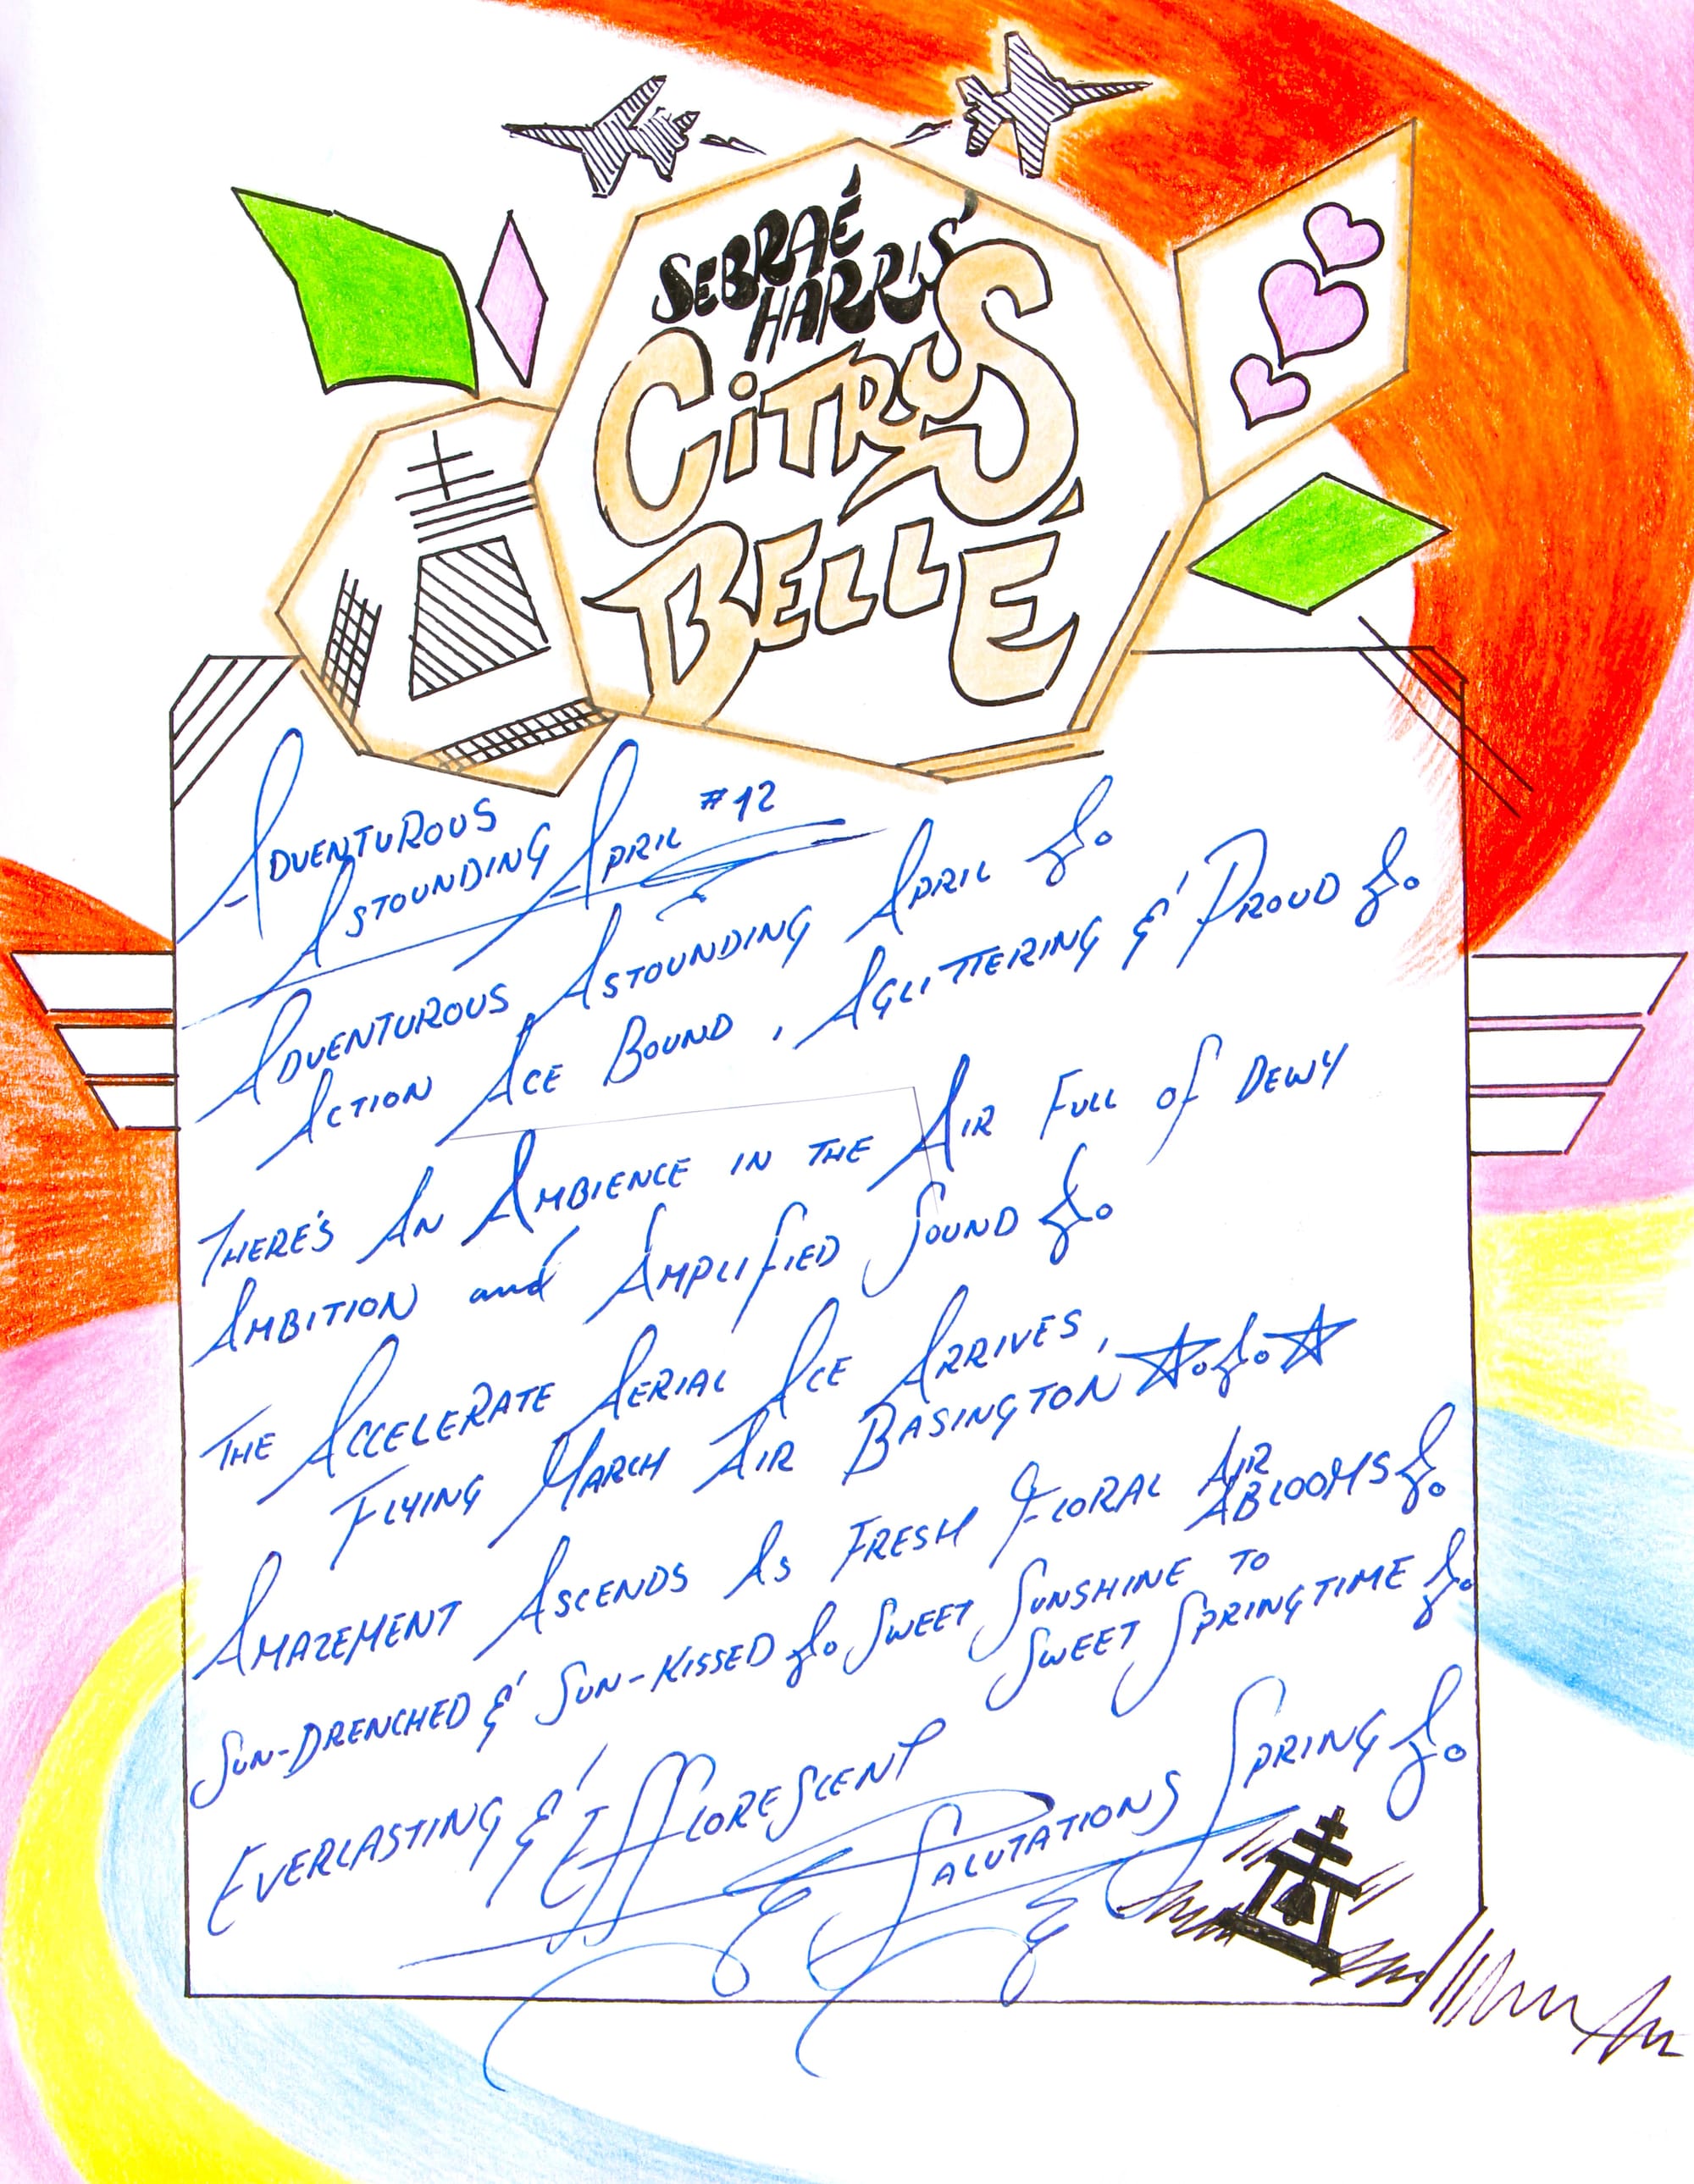 SEBRAÉ
HARRIS'
CiTRUS
BELLÉ
ADVENTUROUS
ASTOUNDING APRIL #12
ADVENTUROUS ASTOUNDING APRIL
ACTION ACE BOUND, AGLITTERING & PROUD
THERE'S AN AMBIENCE IN THE AIR FULL of DEWY
AMBITION and AMPLIFIED SOUND
THE ACCELERATE AERIAL ACE ARRIVES,
FLYING MARCH AIR BASINGTON
AMAZEMENT ASCENDS AS FRESH FLORAL AIR
ABLOOMS
SUN-DRENCHED & SUN-KISSED SWEET SUNSHINE TO
SWEET SPRINGTIME
EVERLASTING & EFFLORESCENT
SALUTATIONS SPRING